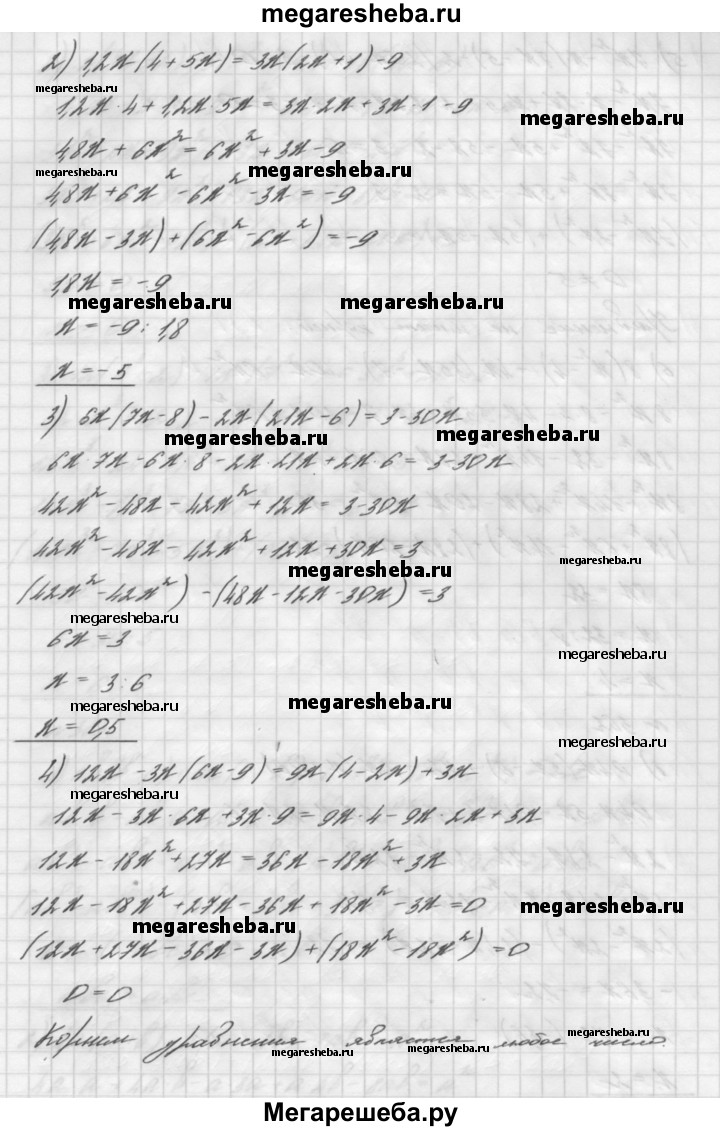 megaresheba.ru
2) 1,2x(4+5x)=3x(2x+1)-9
megaresheba.ru
1,2x·4+1,2x·5x=3x·2x+3x·1-9
megaresheba.ru
4,8x+6x²=6x²+3x-9
megaresheba.ru
megaresheba.ru
4,8x+6x²-6x²-3x=-9
(4,8x-3x)+(6x²-6x²)=-9
1,8x=-9
megaresheba.ru megaresheba.ru
x=-9:1,8
x=-5
3) 6x(7x-8)-2x(21x-6)=3-30x
megaresheba.ru megaresheba.ru
6x·7x-6x·8-2x·21x+2x·6=3-30x
42x²-48x-42x²+12x=3-30x
42x²-48x-42x²+12x+30x=3
megaresheba.ru megaresheba.ru
(42x²-42x²)-(48x-12x-30x)=3
megaresheba.ru
6x=3
megaresheba.ru
x=3:6
megaresheba.ru megaresheba.ru
x=0,5
megaresheba.ru
4) 12x-3x(6x-9)=9x(4-2x)+3x
megaresheba.ru
12x-3x·6x+3x·9=9x·4-9x·2x+3x
12x-18x²+27x=36x-18x²+3x
12x-18x²+27x-36x+18x²-3x=0
megaresheba.ru megaresheba.ru
(12x+27x-36x-3x)+(18x²-18x²)=0
0=0
Корнем уравнения является любое число.
megaresheba.ru megaresheba.ru megaresheba.ru
Мегарешеба.ру